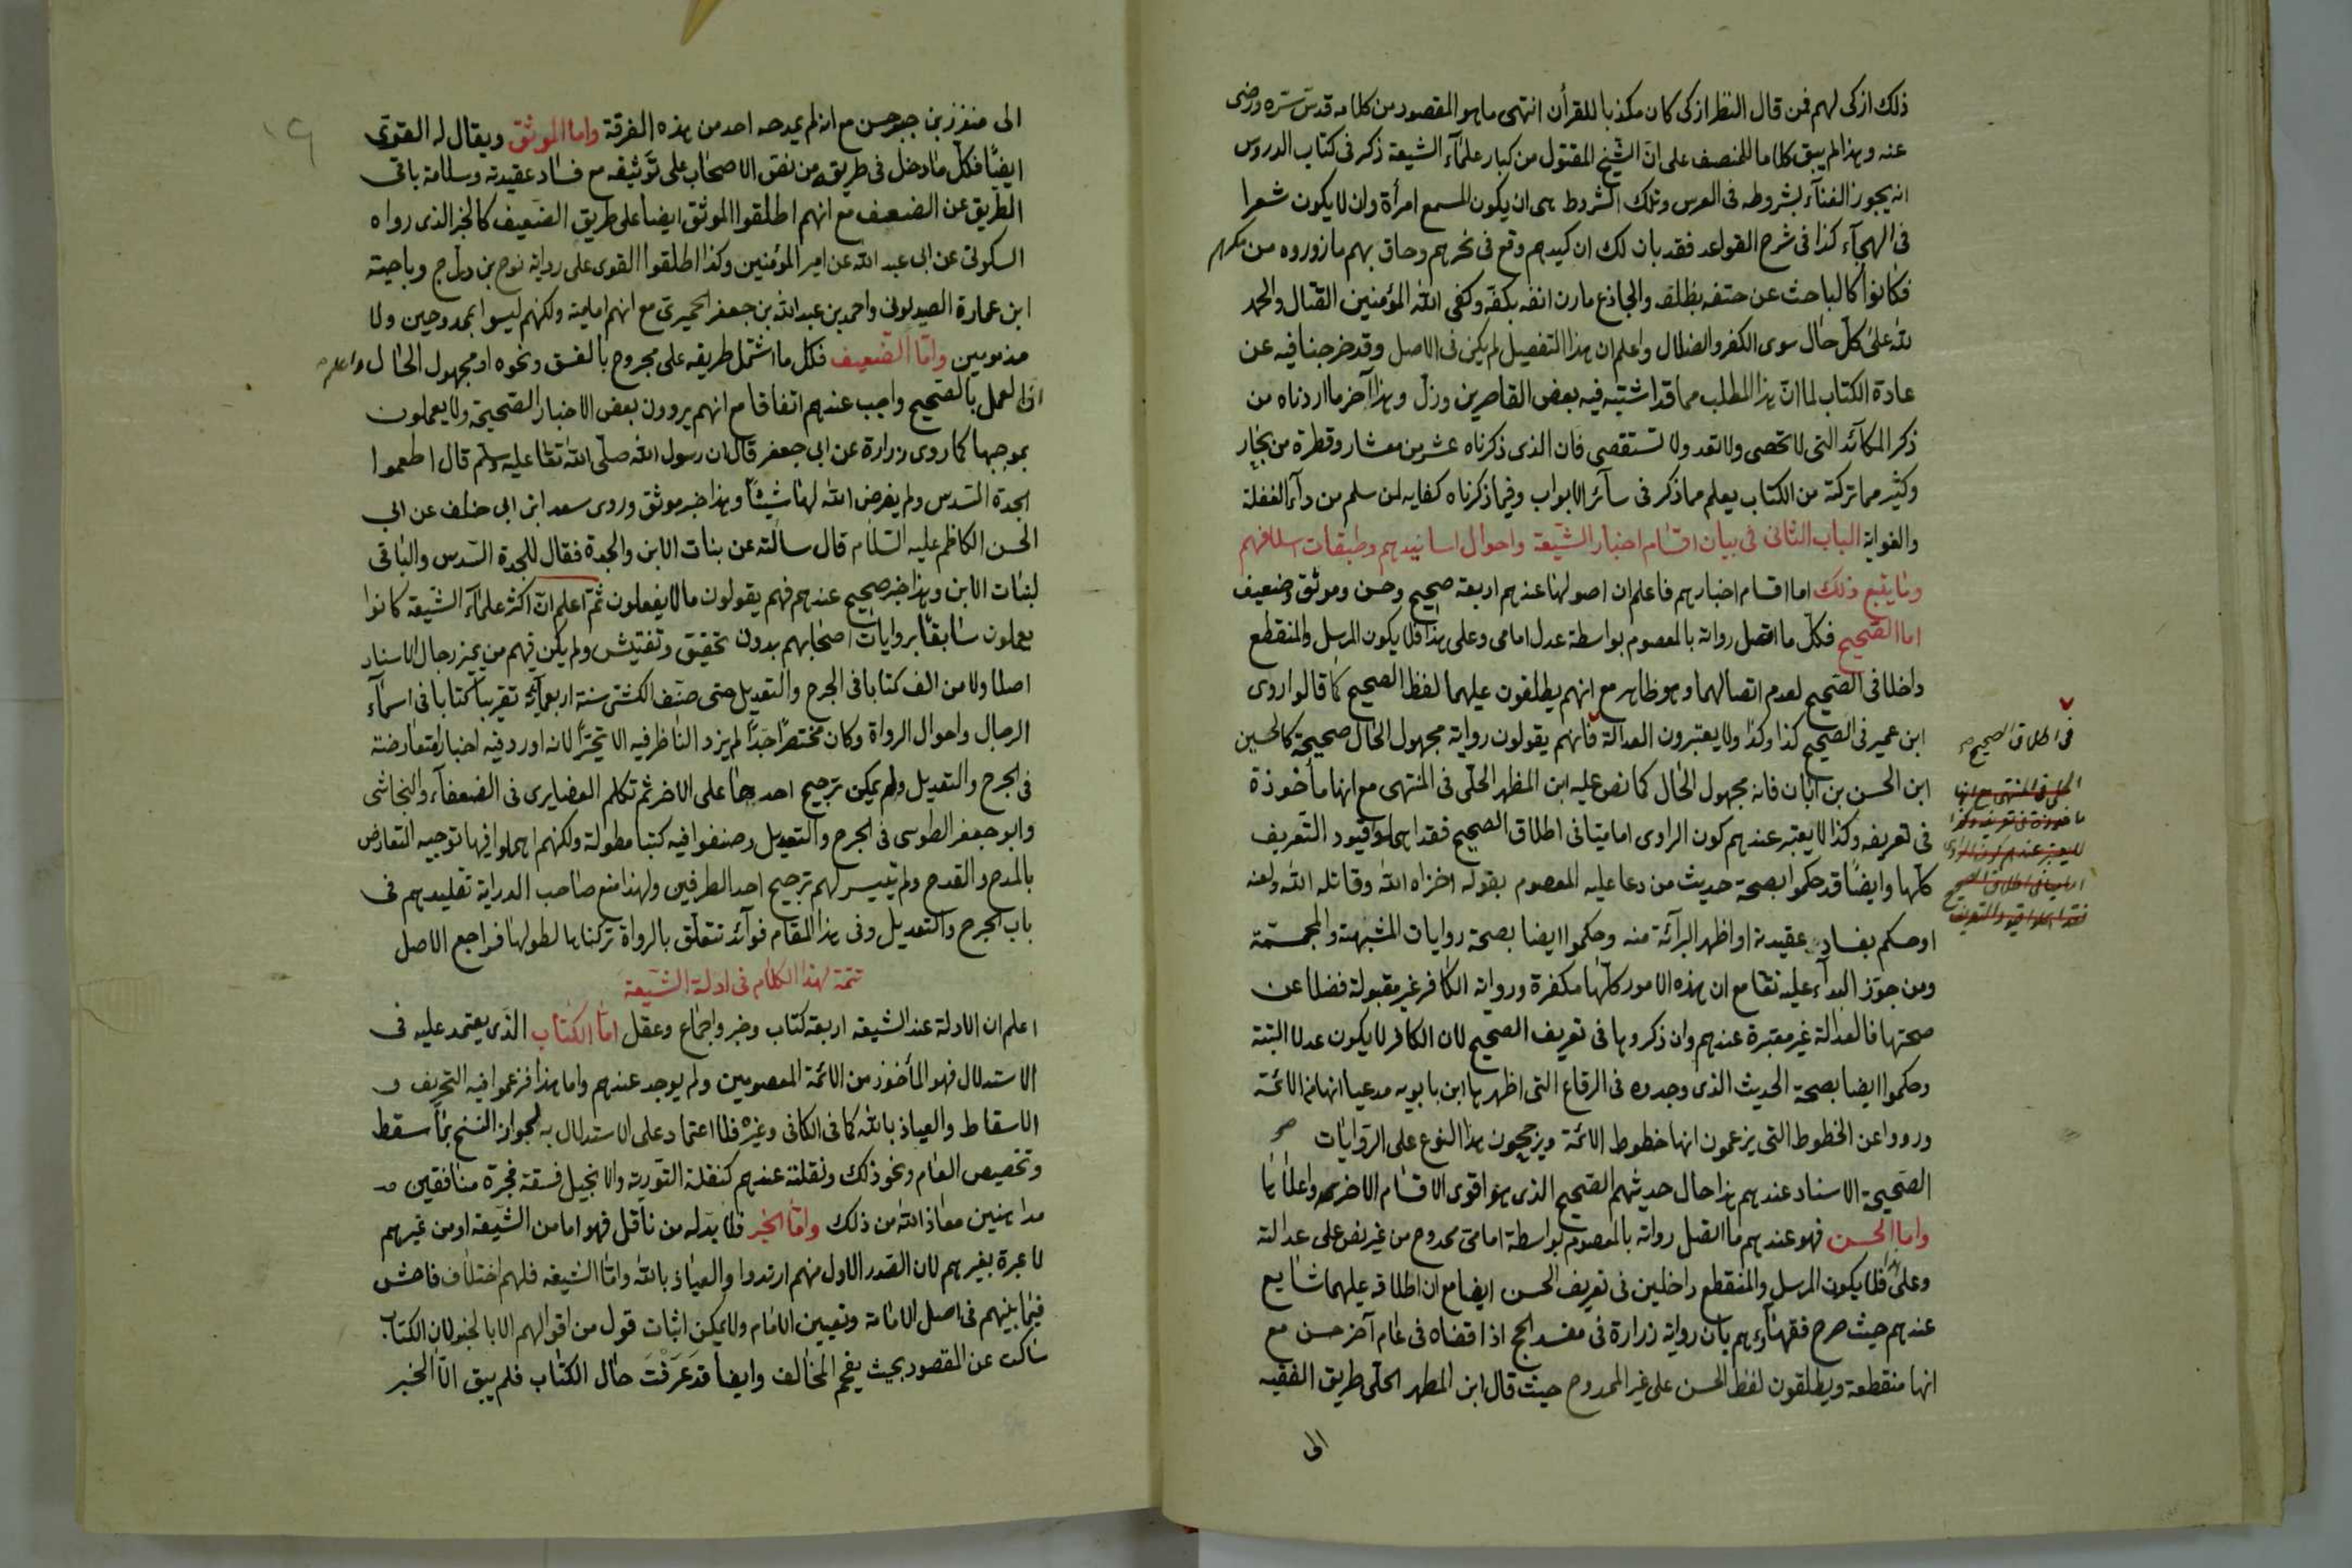 ذلك ازكى لهم فمن قال النظر ازكى كان مكذبا للقرأن انتهى ما هو المقصود من كلامه قدس سره ورضى
عنه وهذا لم يبق كلاما للمنصف على ان الشيخ المقتول من كبار علمآء الشيعة ذكر فى كتاب الدروس
انه يجوز الغنآء بشروطه فى العرس وتلك الشروط هى ان يكون المسمع امرأة وان لا يكون شعرا
فى الهجآء كذا فى شرح القواعد فقد بان لك ان كيدهم وقع فى نحرهم وحاق بهم ما زوروه من مكرهم
فكانوا كالباحث عن حتفه بظلفه والجاذع مارن انفه بكفه وكفى الله المؤمنين القتال والحمد
لله على كل حال سوى الكفر والضلال واعلم ان هذا التفصيل لم يكن فى الاصل وقد خرجنا فيه عن
عادة الكتاب لما ان هذا المطلب مما قد اشتبه فيه بعض القاصرين وزل وهذا آخر ما اردناه من
ذكر المكآئد التى لا تحصى ولا تعد ولا تستقصى فان الذى ذكرناه عشر من معشار وقطرة من بحار
وكثير مما تركته من الكتاب يعلم مما ذكر فى سآئر الابواب وفيما ذكرناه كفايه لمن سلم من دآء الغفلة
والغواية الباب الثانى فى بيان اقسام اخبار الشيعة واحوال اسانيدهم وطبقات اسلافهم
وما يتبع ذلك اما اقسام اخبارهم فاعلم ان اصولها عندهم اربعة صحيح وحسن وموثق وضعيف
اما الصحيح فكل ما اتصل رواته بالمعصوم بواسطة عدل امامى وعلى هذا فلا يكون المرسل والمنقطع
داخلا فى الصحيح لعدم اتصالهما وهو ظاهر مع انهم يطلقون عليهما لفظ الصحيح كما قالوا روى
ابن عمير فى الصحيح كذا وكذا ولا يعتبرون العدالة فانهم يقولون رواية مجهول الحال صحيحة كالحسين
فى اطلاق الصحيح
ابن الحسن بن ابان فانه مجهول الحال كما نص عليه ابن المطهر الحلى فى المنتهى مع انها مأخوذة
فى تعريفه وكذا لا يعتبر عندهم كون الراوى اماميا فى اطلاق الصحيح فقد اهملوا قيود التعريف
الحلى فى المنتهى مع انها
ماخوذة فى تعريفه وكذا
لا يعتبر عندهم كون الراوى
اماميا فى اطلاق الصحيح
فقد اهملوا قيود التعريف
كلها وايضا قد حكموا بصحة حديث من دعا عليه المعصوم بقوله اخزاه الله وقاتله الله ولعنه
او حكم بفساد عقيدته او اظهر البرآئة منه وحكموا ايضا بصحة روايات المشبهة والمجسمة
ومن جوز البدآء عليه تعا مع ان هذه الامور كلها مكفرة ورواية الكافر غير مقبولة فضلا عن
صحتها فالعدالة غير معتبرة عندهم وان ذكروها فى تعريف الصحيح لان الكافر لا يكون عدلا البتة
وحكموا ايضا بصحة الحديث الذى وجدوه فى الرقاع التى اظهرها ابن بابويه مدعيا انها من الائمة
ورووا عن الخطوط التى يزعمون انها خطوط الائمة ويرجحون هذا النوع على الروايات
الصحيحة الاسناد عندهم هذا حال حديثهم الصحيح الذى هو اقوى الاقسام الاخرى واعلاها
واما الحسن فهو عندهم ما اتصل رواته بالمعصوم بواسطة امامى ممدوح من غير نص على عدالته
وعلى هذا فلا يكون المرسل والمنقطع داخلين فى تعريف الحسن ايضا مع ان اطلاقه عليهما شايع
عندهم حيث صرح فقهآؤهم بان رواية زرارة فى مفسد الحج اذا قضاه فى عام آخر حسن مع
انها منقطعة ويطلقون لفظ الحسن على غير الممدوح حيث قال ابن المطهر الحلى طريق الفقيه
الى
الى منذر بن جيفر حسن مع انه لم يمدحه احد من هذه الفرقة واما الموثق ويقال له القوى
ايضا فكل ما دخل فى طريقه من نص الاصحاب على توثيقه مع فساد عقيدته وسلامة باقى
الطريق عن الضعف مع انهم اطلقوا الموثق ايضا على طريق الضعيف كالخبر الذى رواه
السكونى عن ابى عبد الله عن امير المؤمنين وكذا اطلقوا القوى على رواية نوح بن دراج وناجية
ابن عمارة الصيداوى واحمد بن عبد الله بن جعفر الحميرى مع انهم امامية ولكنهم ليسوا بممدوحين ولا
مذمومين واما الضعيف فكل ما اشتمل طريقه على مجروح بالفسق ونحوه او مجهول الحال واعلم
ان العمل بالصحيح واجب عندهم اتفاقا مع انهم يروون بعض الاخبار الصحيحة ولا يعملون
بموجبها كما روى زرارة عن ابى جعفر قال ان رسول الله صلى الله تعا عليه وسلم قال اطعموا
الجدة السدس ولم يفرض الله لها شيئا وهذا خبر موثق وروى سعد ابن ابى خلف عن ابى
الحسن الكاظم عليه السلام قال سالته عن بنات الابن والجدة فقال للجدة السدس والباقى
لبنات الابن وهذا خبر صحيح عندهم فهم يقولون ما لا يفعلون ثم اعلم ان اكثر علمآء الشيعة كانوا
يعملون سابقا بروايات اصحابهم بدون تحقيق وتفتيش ولم يكن فيهم من يميز رجال الاسناد
اصلا ولا من الف كتابا فى الجرح والتعديل حتى صنف الكشى سنة اربعمائة تقريبا كتابا فى اسمآء
الرجال واحوال الرواة وكان مختصرا جدا لم يزد الناظر فيه الا تحيرا لانه اورد فيه اخبارا متعارضة
فى الجرح والتعديل ولم يمكن ترجيح احدهما على الاخر ثم تكلم الغضايرى فى الضعفآء والنجاشى
وابو جعفر الطوسى فى الجرح والتعديل وصنفوا فيه كتبا مطولة ولكنهم اهملوا فيها توجيه التعارض
بالمدح والقدح ولم يتيسر لهم ترجيح احد الطرفين ولهذا منع صاحب الدراية تقليدهم فى
باب الجرح والتعديل وفى هذا المقام فوآئد تتعلق بالرواة تركناها لطولها فراجع الاصل
تتمة لهذا الكلام فى ادلة الشيعة
اعلم ان الادلة عند الشيعة اربعة كتاب وخبر واجماع وعقل اما الكتاب الذى يعتمد عليه فى
الاستدلال فهو المأخوذ من الائمة المعصومين ولم يوجد عندهم واما هذا فزعموا فيه التحريف و
الاسقاط والعياذ بالله كما فى الكافى وغيره فلا اعتماد على الاستدلال به لجواز النسخ بما سقط
وتخصيص العام ونحو ذلك ونقلته عندهم كنقلة التورية والانجيل فسقة فجرة منافقين
مداهنين معاذ الله من ذلك واما الخبر فلا بد له من ناقل فهو اما من الشيعة او من غيرهم
لا عبرة بغيرهم لان الصدر الاول منهم ارتدوا والعياذ بالله واما الشيعة فلهم اختلاف فاحش
فيما بينهم فى اصل الامامة وتعيين الامام ولا يمكن اثبات قول من اقوالهم الا بالخبر لان الكتاب
ساكت عن المقصود بحيث يفحم المخالف وايضا قد عرفت حال الكتاب فلم يبق الا الخبر